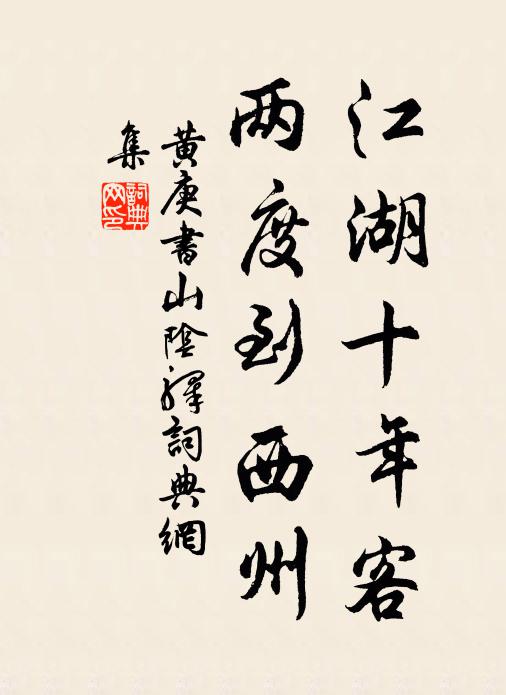 江湖十年客
两度到西州
黄庚书山陰驛詞典網
集
詞典
网印